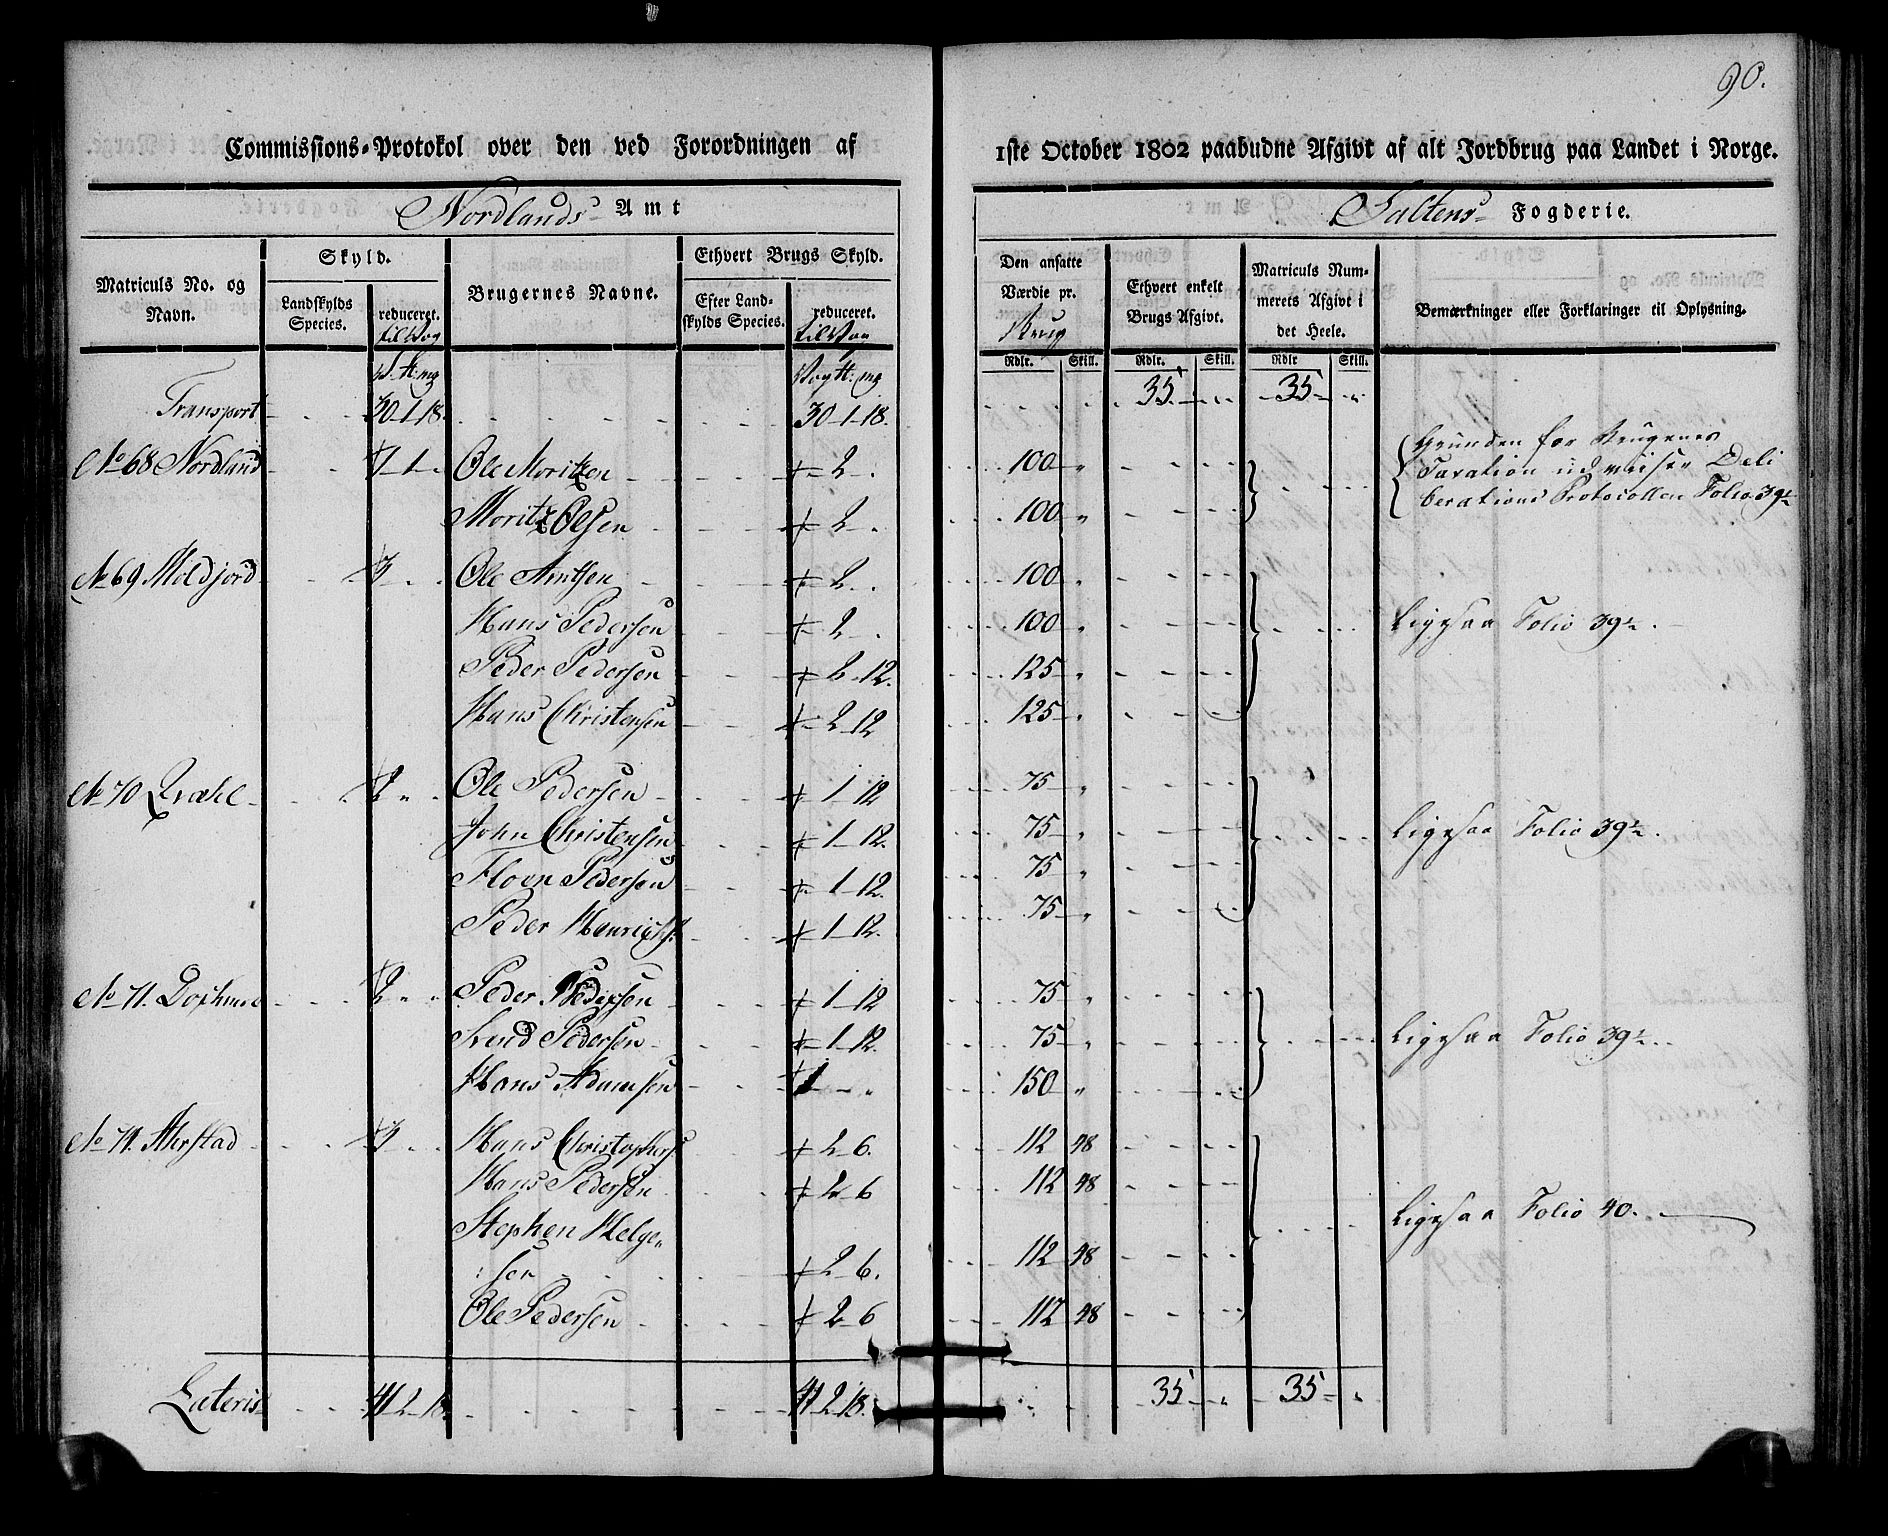 90.
Commissions-Protokol over den ved Forordningen af 1ste October 1802 paabudne Afgivt af alt Jordbrug paa Landet i Norge.
Nordlands Amt
Saltens Fogderie.
Matriculs No. og Navn.
Skyld.
Landskylds Species.
reduceret. til Vog
Brugernes Navne.
Ethvert Brugs Skyld.
Efter Landskylds Species.
reduceret. til Vog
Den ansatte Værdie pr. Brug
Ethvert enkelt Brugs Afgivt.
Matriculs Nummerets Afgivt i det Heele.
Bemærkninger eller Forklaringer til Oplysning.
Rdlr. Skill. Rdlr. Skill. Rdlr Skill.
Transport 30-1-18. 30-1-18. 35 35
No 68 Nordland 1 Ole Moritzen 2 100
Moritz Olsen 2 100
Grunden for Brugenes
Taxation udviiser Deli
berations Protocollen Folio 39
No 69 Moldjord Ole Arntsen 2 100
Hans Pedersen 2 100
Ligesaa Folio 39
Peder Pedersen 2-12. 125
Hans Christensen 2-12 125
No 70 Ole Pedersen 1-12 75
John Christensen 1-12. 75
Ligesaa Folio 39
Pedersen 1-12. 75
Peder 1-12. 75
No 71. 2 Peder Pedersen 1-12 75
Svend Pedersen 1-12. 75
Ligesaa Folio 39
Hans Adamsen 150
Hans Christophers 2-6. 112 48
Hans Pedersen 2-6 112 48
Stephen Helge
sen 2-6. 112 48
Ligesaa Folio 40.
Ole Pedersen 2-6 112 48
Lateris 41-2-18. 41-2-18. 35 35